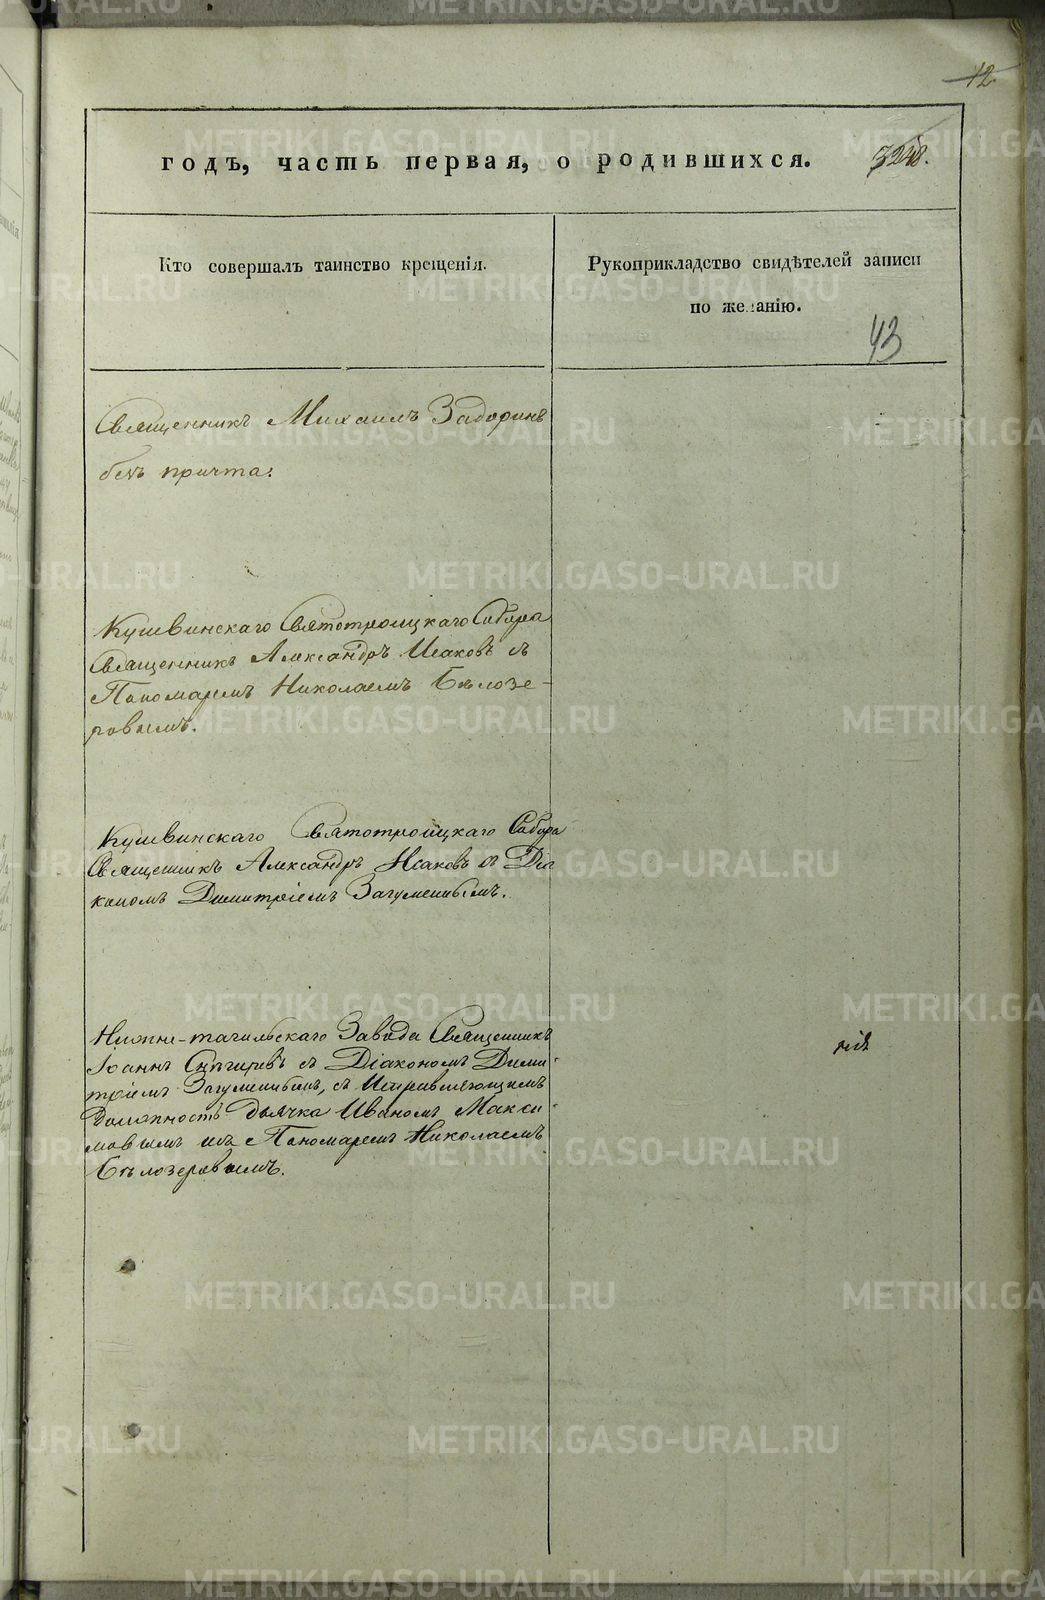 12
годъ, часть первая, о родившихся.
3248.
Кто совершалъ таинство крещенія.
Рукоприкладство свидѣтелей записи
по желанію.
43
Священникъ Михаилъ Задоринъ
безъ причта.
Кушвинскаго Святотроицкаго Собора
Священникъ Александръ Исаковъ съ
Пономаремъ Николаемъ Бѣлозе-
ровымъ.
Кушвинскаго Святотроицкаго Собора
Священникъ Александръ Исаковъ съ Діа
кономъ Димитріемъ Загуменнымъ.
Нижне-тагильскаго Завода Священникъ
Іоаннъ Снѣгиревъ съ Діакономъ Дими-
тріемъ Загуменнымъ, съ Исправляющимъ
должность дьячка Иваномъ Макси-
мовымъ и съ Пономаремъ Николаемъ
Бѣлозеровымъ.
METRIKI.GASO-URAL.RU